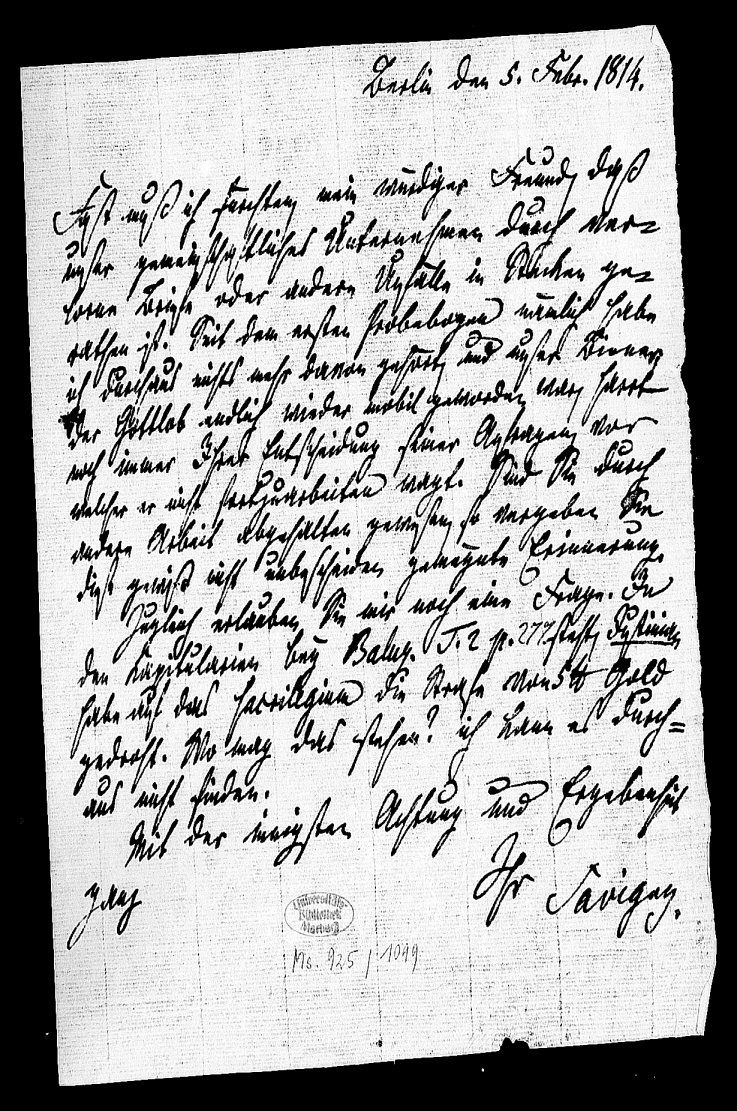 Berlin den 5. Febr. 1814.
Fast muß ich fürchten, mein würdiger Freund, daß
unser gemeinschaftliches Unternehmen durch ver-
lorne Briefe oder andere Unfälle in Stocken ge-
rathen ist. Seit dem ersten Probebogen nämlich habe
ich durchaus nichts mehr davon gehört, und unser Biener,
der Gottlob endlich wieder mobil geworden war, harrt
noch immer Ihrer Entscheidung seiner Anfragen, vor
welcher er nicht fortzuarbeiten wagt. Sind Sie durch
andere Arbeit abgehalten gewesen, so vergeben Sie
diese gewiß nicht unbescheiden gemeynte Erinnerung.
Zugleich erlauben Sie mir noch eine Frage. In
den Capitularien bey Baluz. T. 2 p. 277 steht, Justinian
habe auf das sacrilegium die Strafe von 5 ℔ Gold
gedroht. Wo mag das stehen? ich kann es durch-
aus nicht finden.
Mit der innigsten Achtung und Ergebenheit
Ihr Savigny.
Universitäts
Bibliothek
Marburg
Ms. 925 / 1099